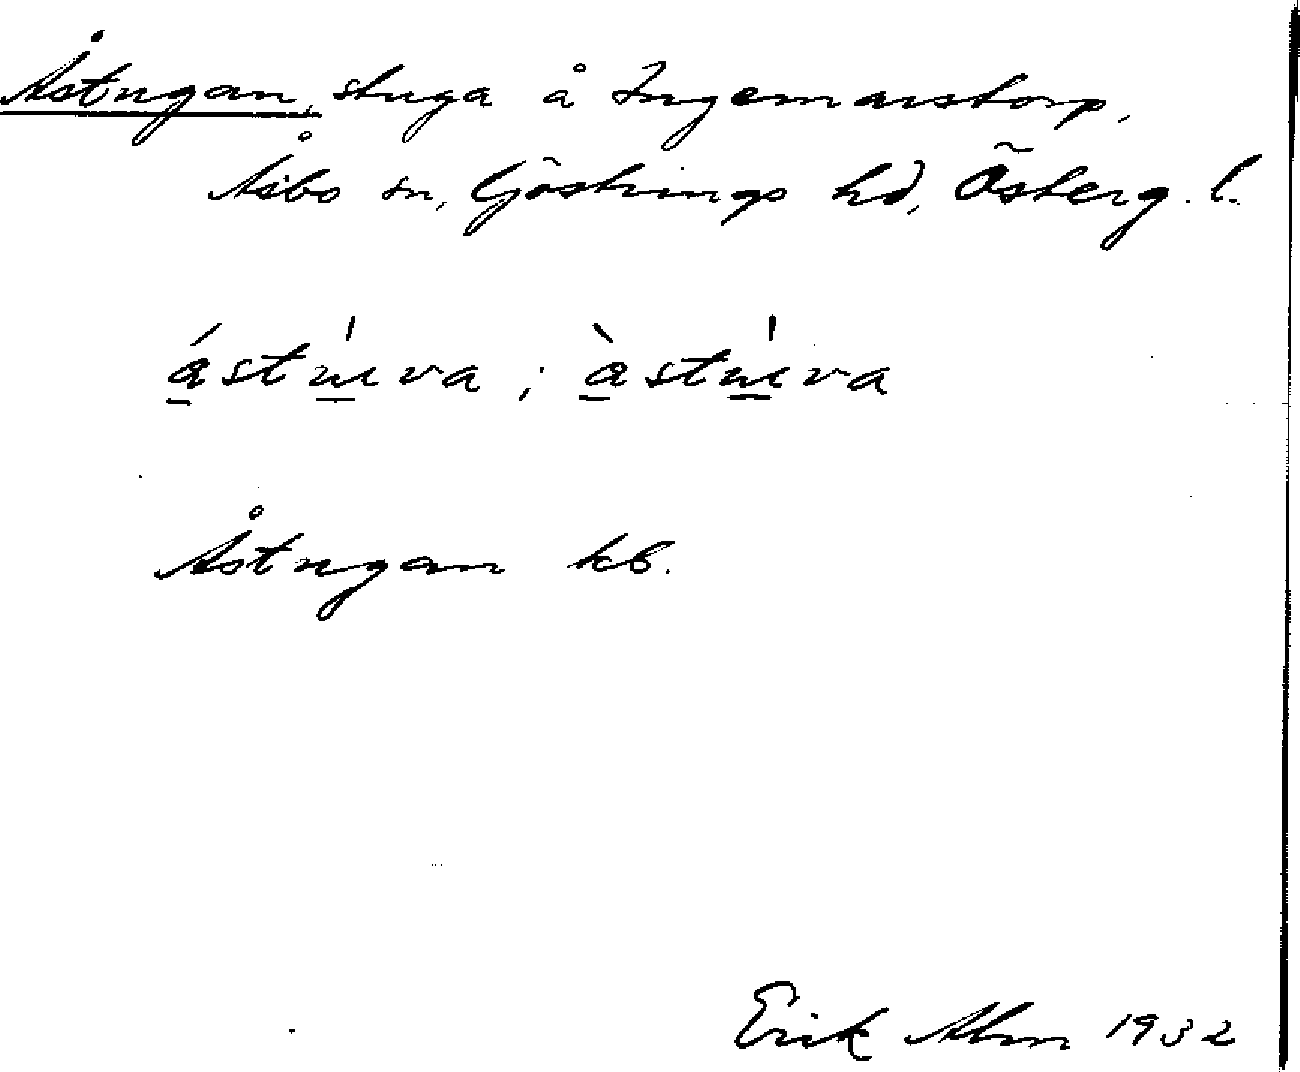 Åstugan, stuga å Ingemarstorp,
Åsbo sn, Göstrings hd, Österg. l.
ástu̍va ; àstu̍va
Åstugan kb.
Erik Alm 1932